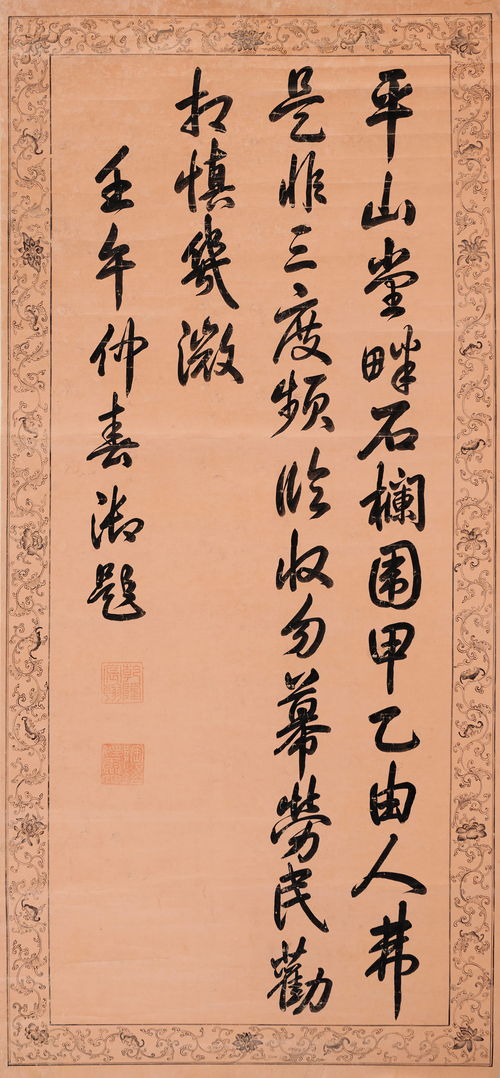 平山堂畔石欄圍甲乙由人苐
是非三度頻臨收勿幕勞民勸
相慎幾微
壬午仲春御題
乾隆宸翰